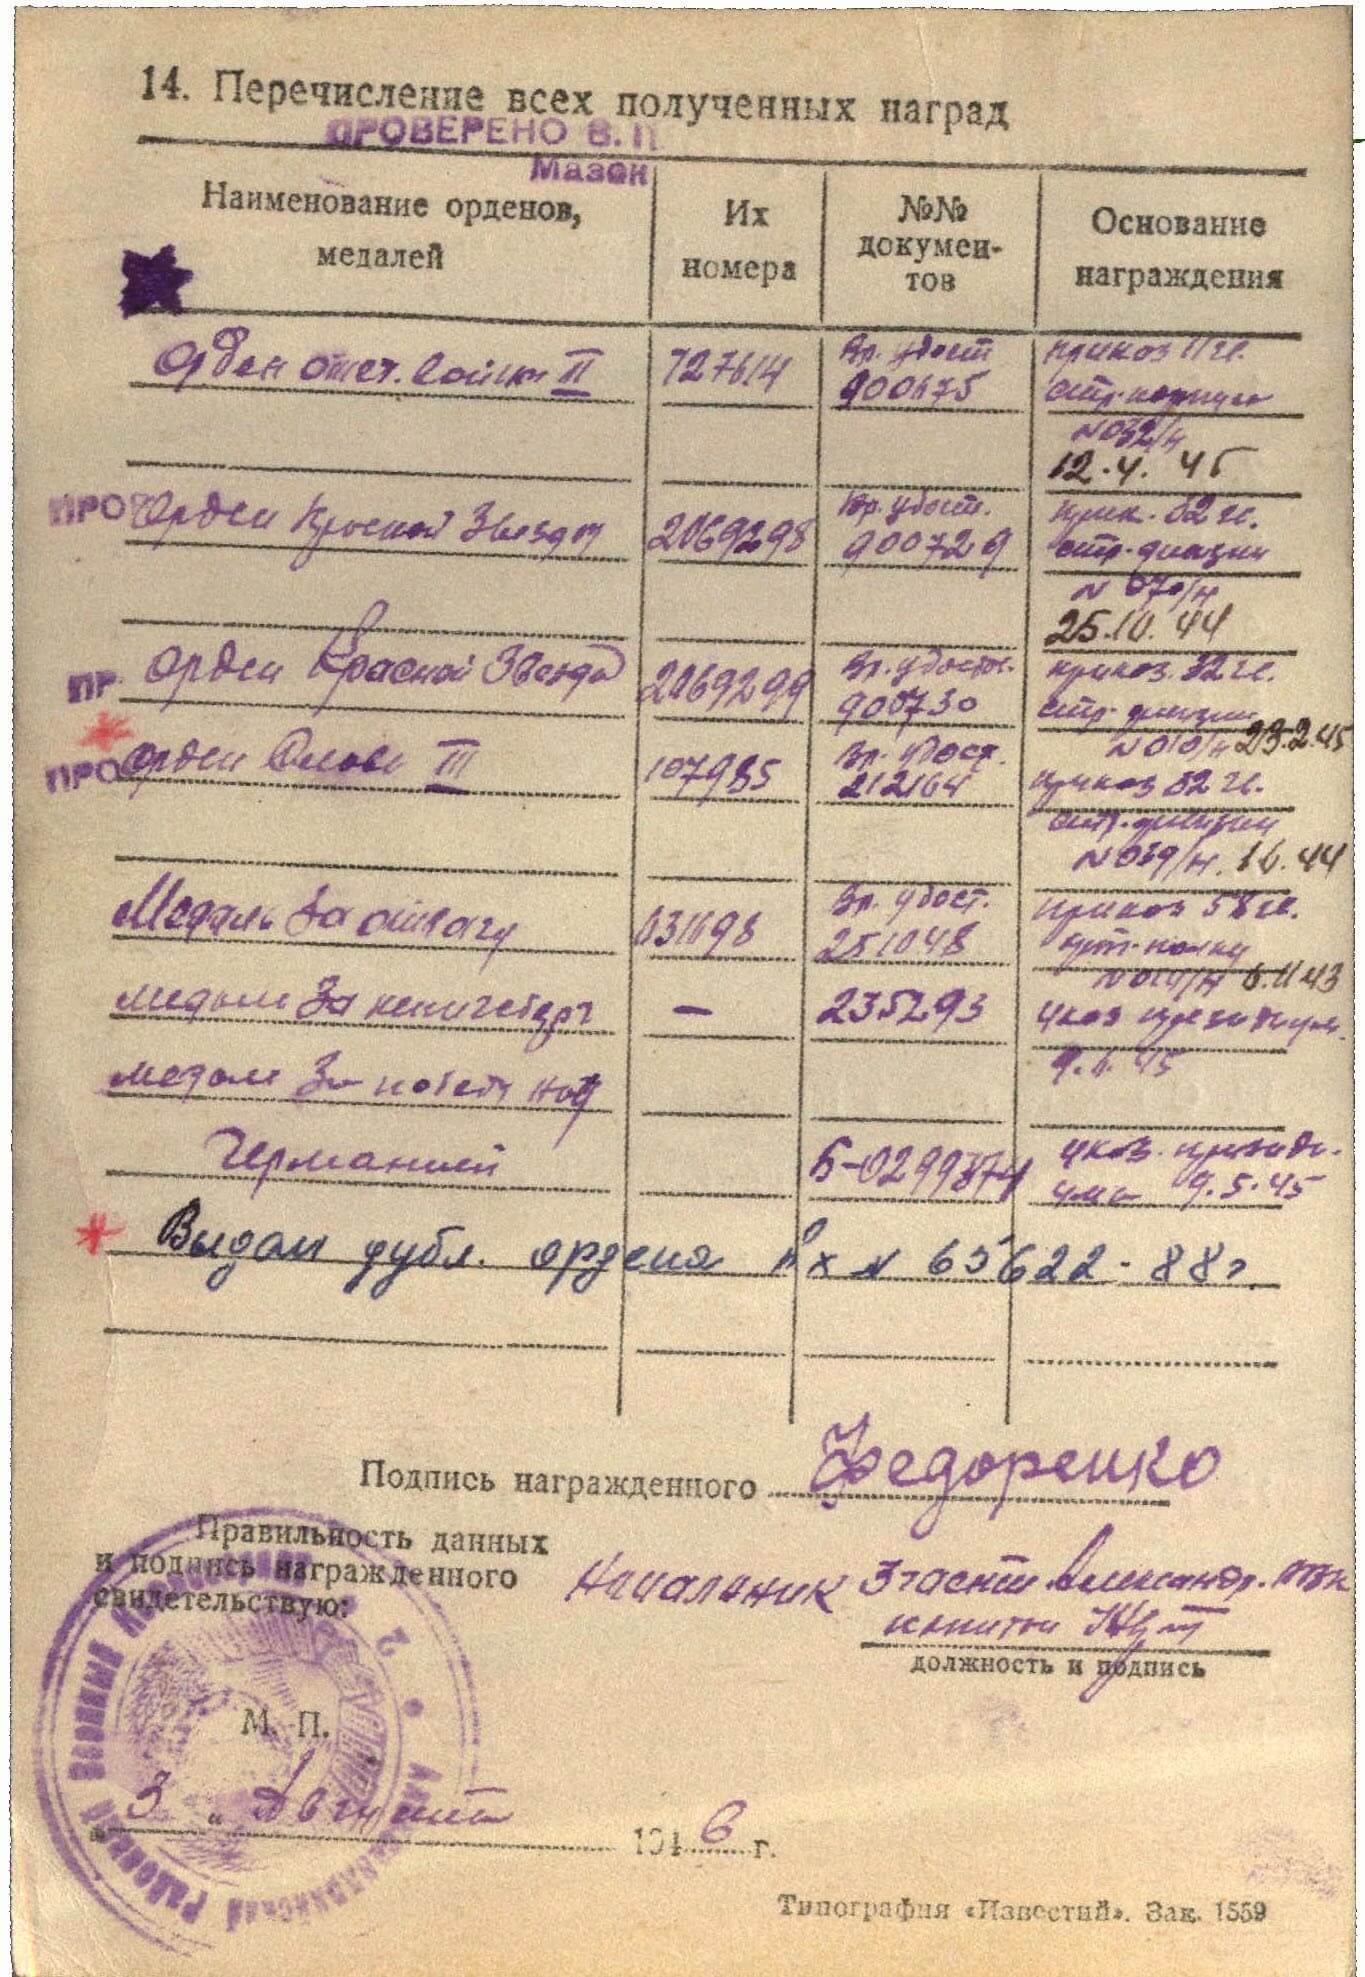 14. Перечисление всех полученных наград
ПРОВЕРЕНО В. П
Мазон
Наименование орденов, медалей
Их номера
№№ докумен-тов
Основание награждения
Орден отеч. войны II 727614 Вр. удост 900675 приказ 11 гв.
стр. корпуса
N 032/н
12. 4. 45
ПРО Орден Красной Звезды 2069298 Вр. удост. 900729 прик. 52 гв.
стр. дивизии
N 070/н
25.10. 44
ПР. Орден Красной Звезды 2069299 Вр. удост. 900730 приказ. 52 гв.
стр. дивизии
N 010/н 23.2.45
ПРО Орден Славы III 107985 Вр. удост. 212164 приказ 52 гв.
стр. дивизии
N 039/н. 44
Медаль За отвагу Вр. удост. 251048 приказ 58 гв.
арт. полка
43
медаль За кенигсберг — 235293 указ президиум.
45
медаль За победу над
Германией Б-0299874 указ. президи-
ума 9.5.45
Выдан дубл. ордена N 65622 - 88г.
Подпись награжденного Федоренко
Правильность данных
и подпись награжденного
свидетельствую:
Начальник 3 части Александр. РВК
капитан
должность и подпись
М. П.
„ 3 “ Августа 1946 г.
Типография «Известий». Зак. 1559